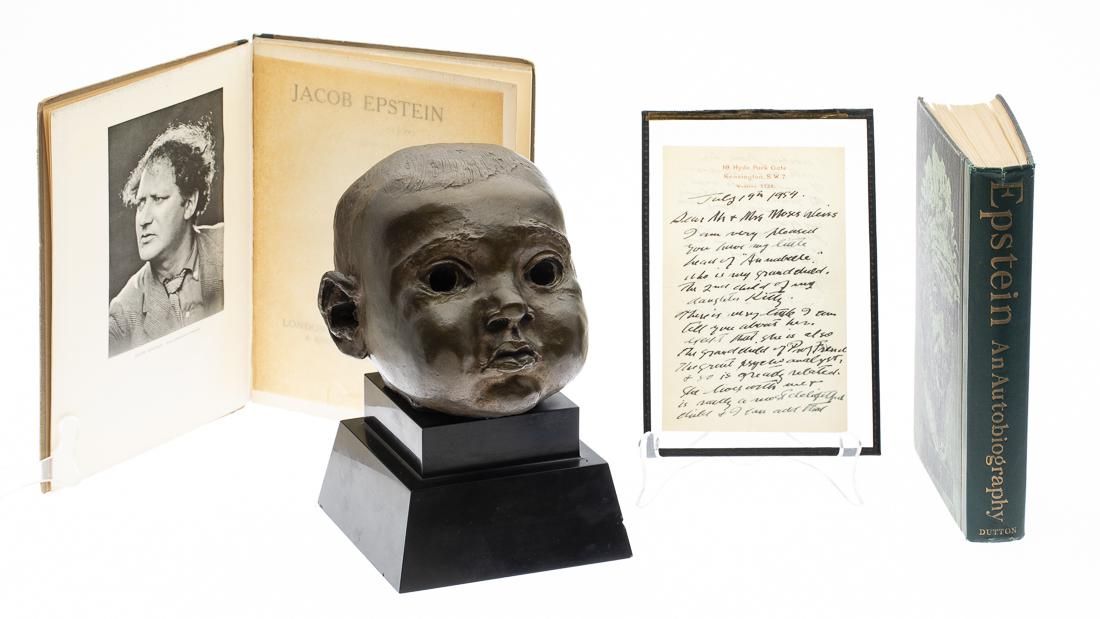 JACOB EPSTEIN
LONDON
18 Hyde Park Gate
Kensington. S.W. 7.
July 19th 1954.
Dear Mr & Mrs Moses Weiss
I am very pleased
you have my little
head of "Annabelle."
who is my grandchild.
The 2nd child of my
daughter Kitty.
There is very little I can
tell you about her.
that she is also
the grandchild of Prof Freud
the great psychoanalyst,
& so is greatly related.
She lives with me &
is really a most delightful
child & I can add that
Epstein An Autobiography
DUTTON